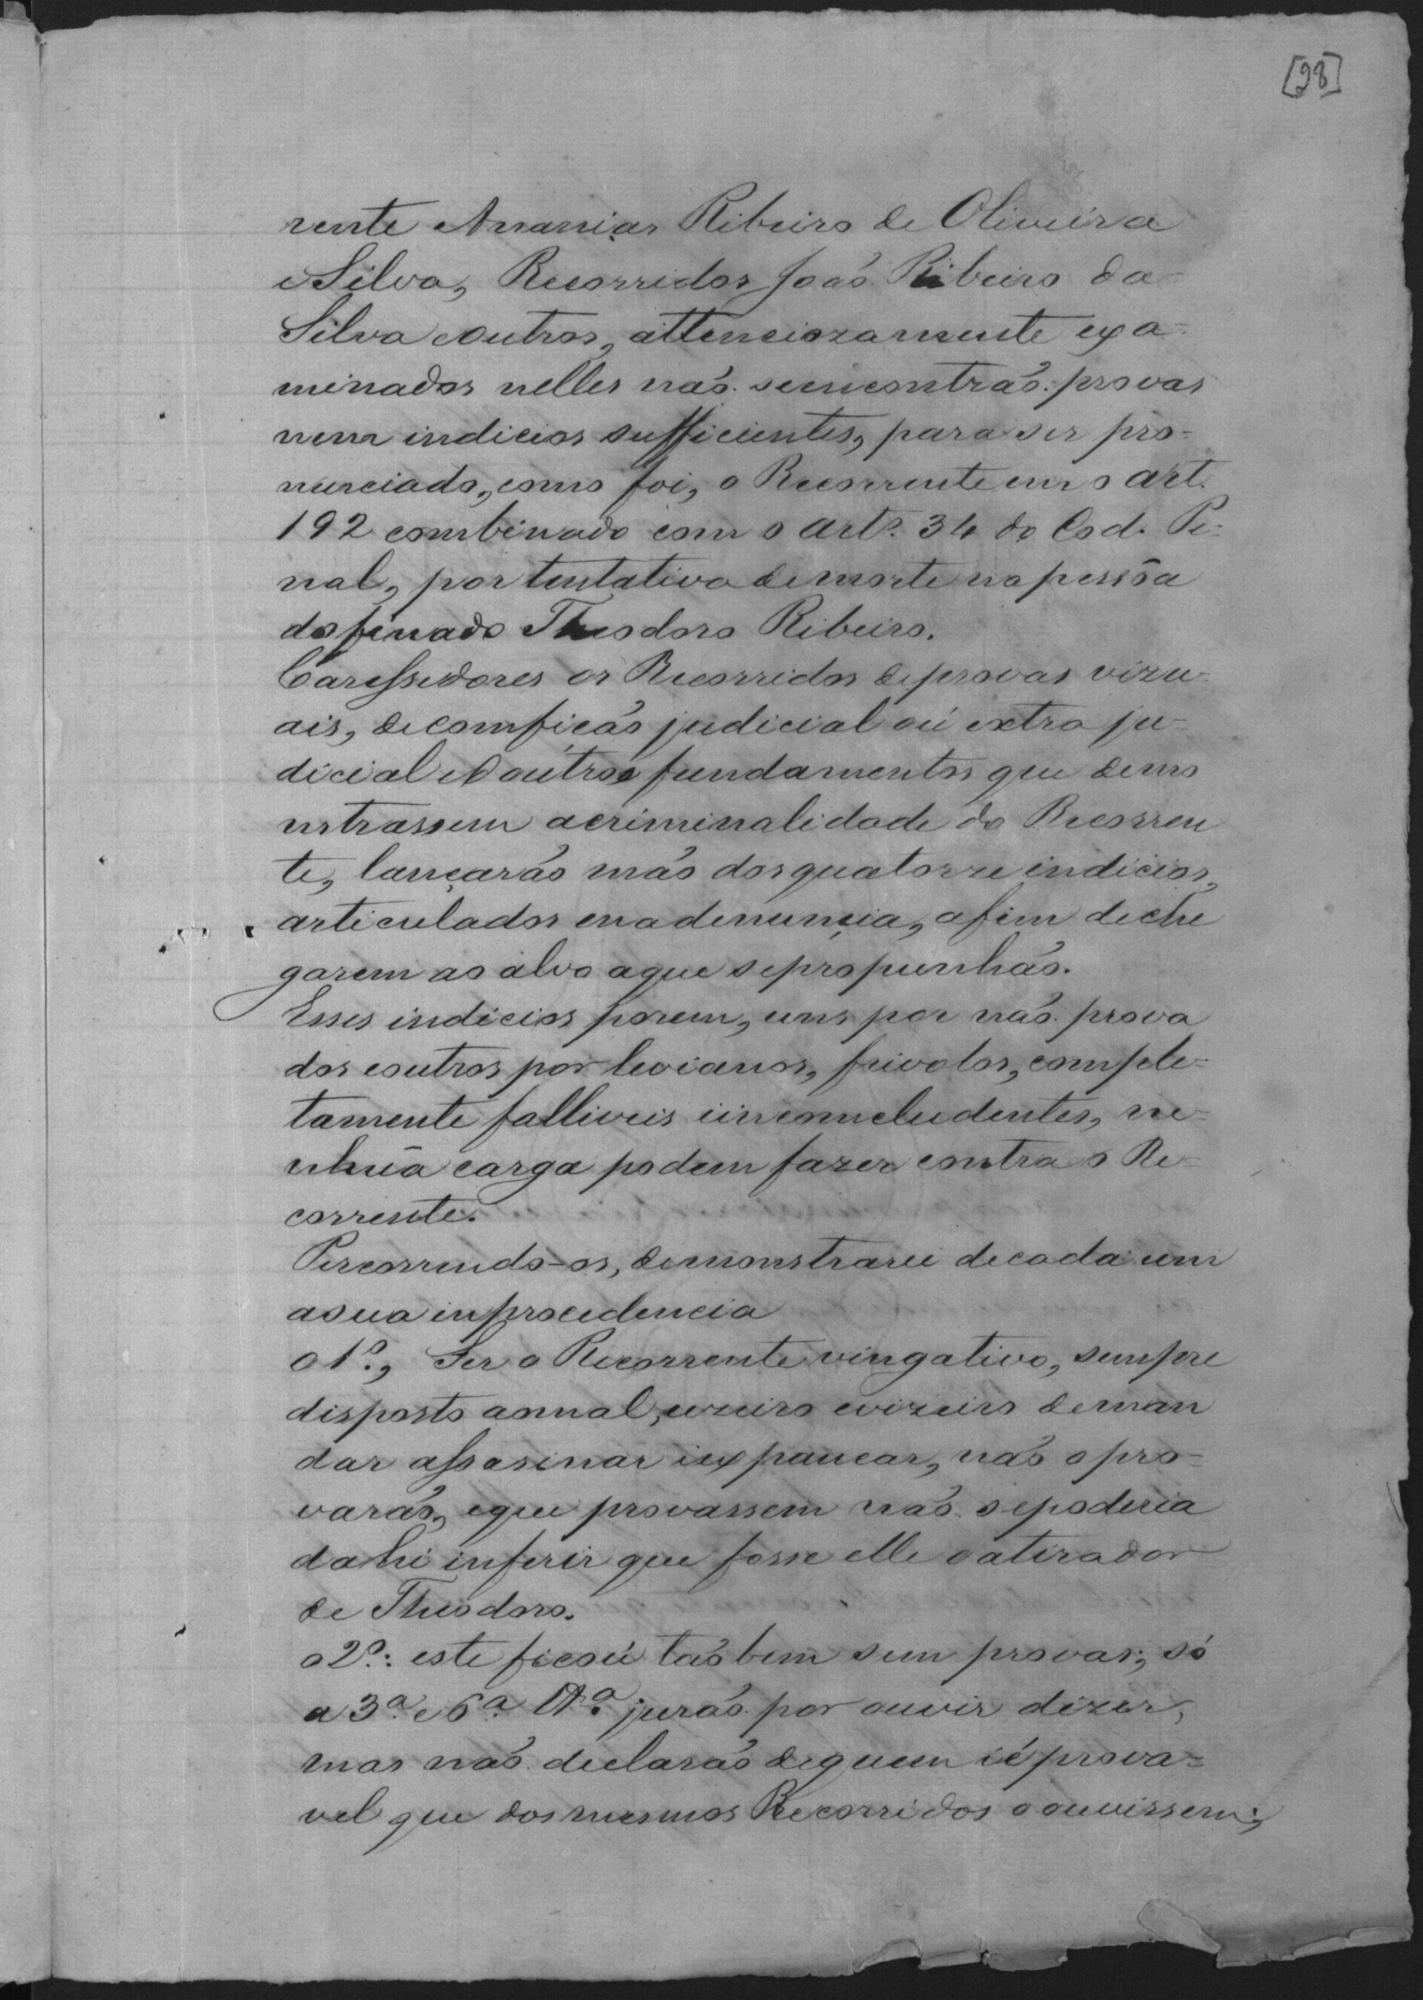 [28]
rente Ananias Ribeiro de Oliveira
e Silva, Recorridos João Ribeiro da
Silva e outros, attenciozamente exa-
minados nelles não se encontrão provas
nem indicios sufficientes, para ser pro-
nunciado, como foi, o Recorrente em o art.
192 combinado com o artº. 34 do Cod. Pe-
nal, por tentativa de morte na pessôa
do finado Theodoro Ribeiro.
Caressedores os Recorridos de provas vizu-
ais, de comficão judicial oú extra ju-
dicial e d'oútros fundamentos que demo
nstrassem a criminalidade do Recorren
te, lançarão mão dos quatorze indicios,
articulados na denuncia, afim de che
garem ao alvo a que se propunhão.
Esses indicios porem, uns por não prova
dos e outros por levianos, frivolos, comple-
tamente falliveis i inconcludentes, ne-
nhuã carga podem fazer contra o Re-
corrente.
Percorrendo-os, demonstrarei de cada um
a sua inprocedencia
o 1º., Ser o Recorrente vingativo, sempre
disposto ao mal, uzeiro e vizeiro de man
dar assasinar i expancar, não o pro-
varão, e que provassem não se poderia
dahi inferir que fosse elle o atirador
de Theodoro.
o 2º.: este ficoú tãobem sem provas; só
a 3ª e 6ª tª. jurão por ouvir dizer,
mas não declarão de quem i é prova-
vel que dos mesmos Recorridos o ouvissem;